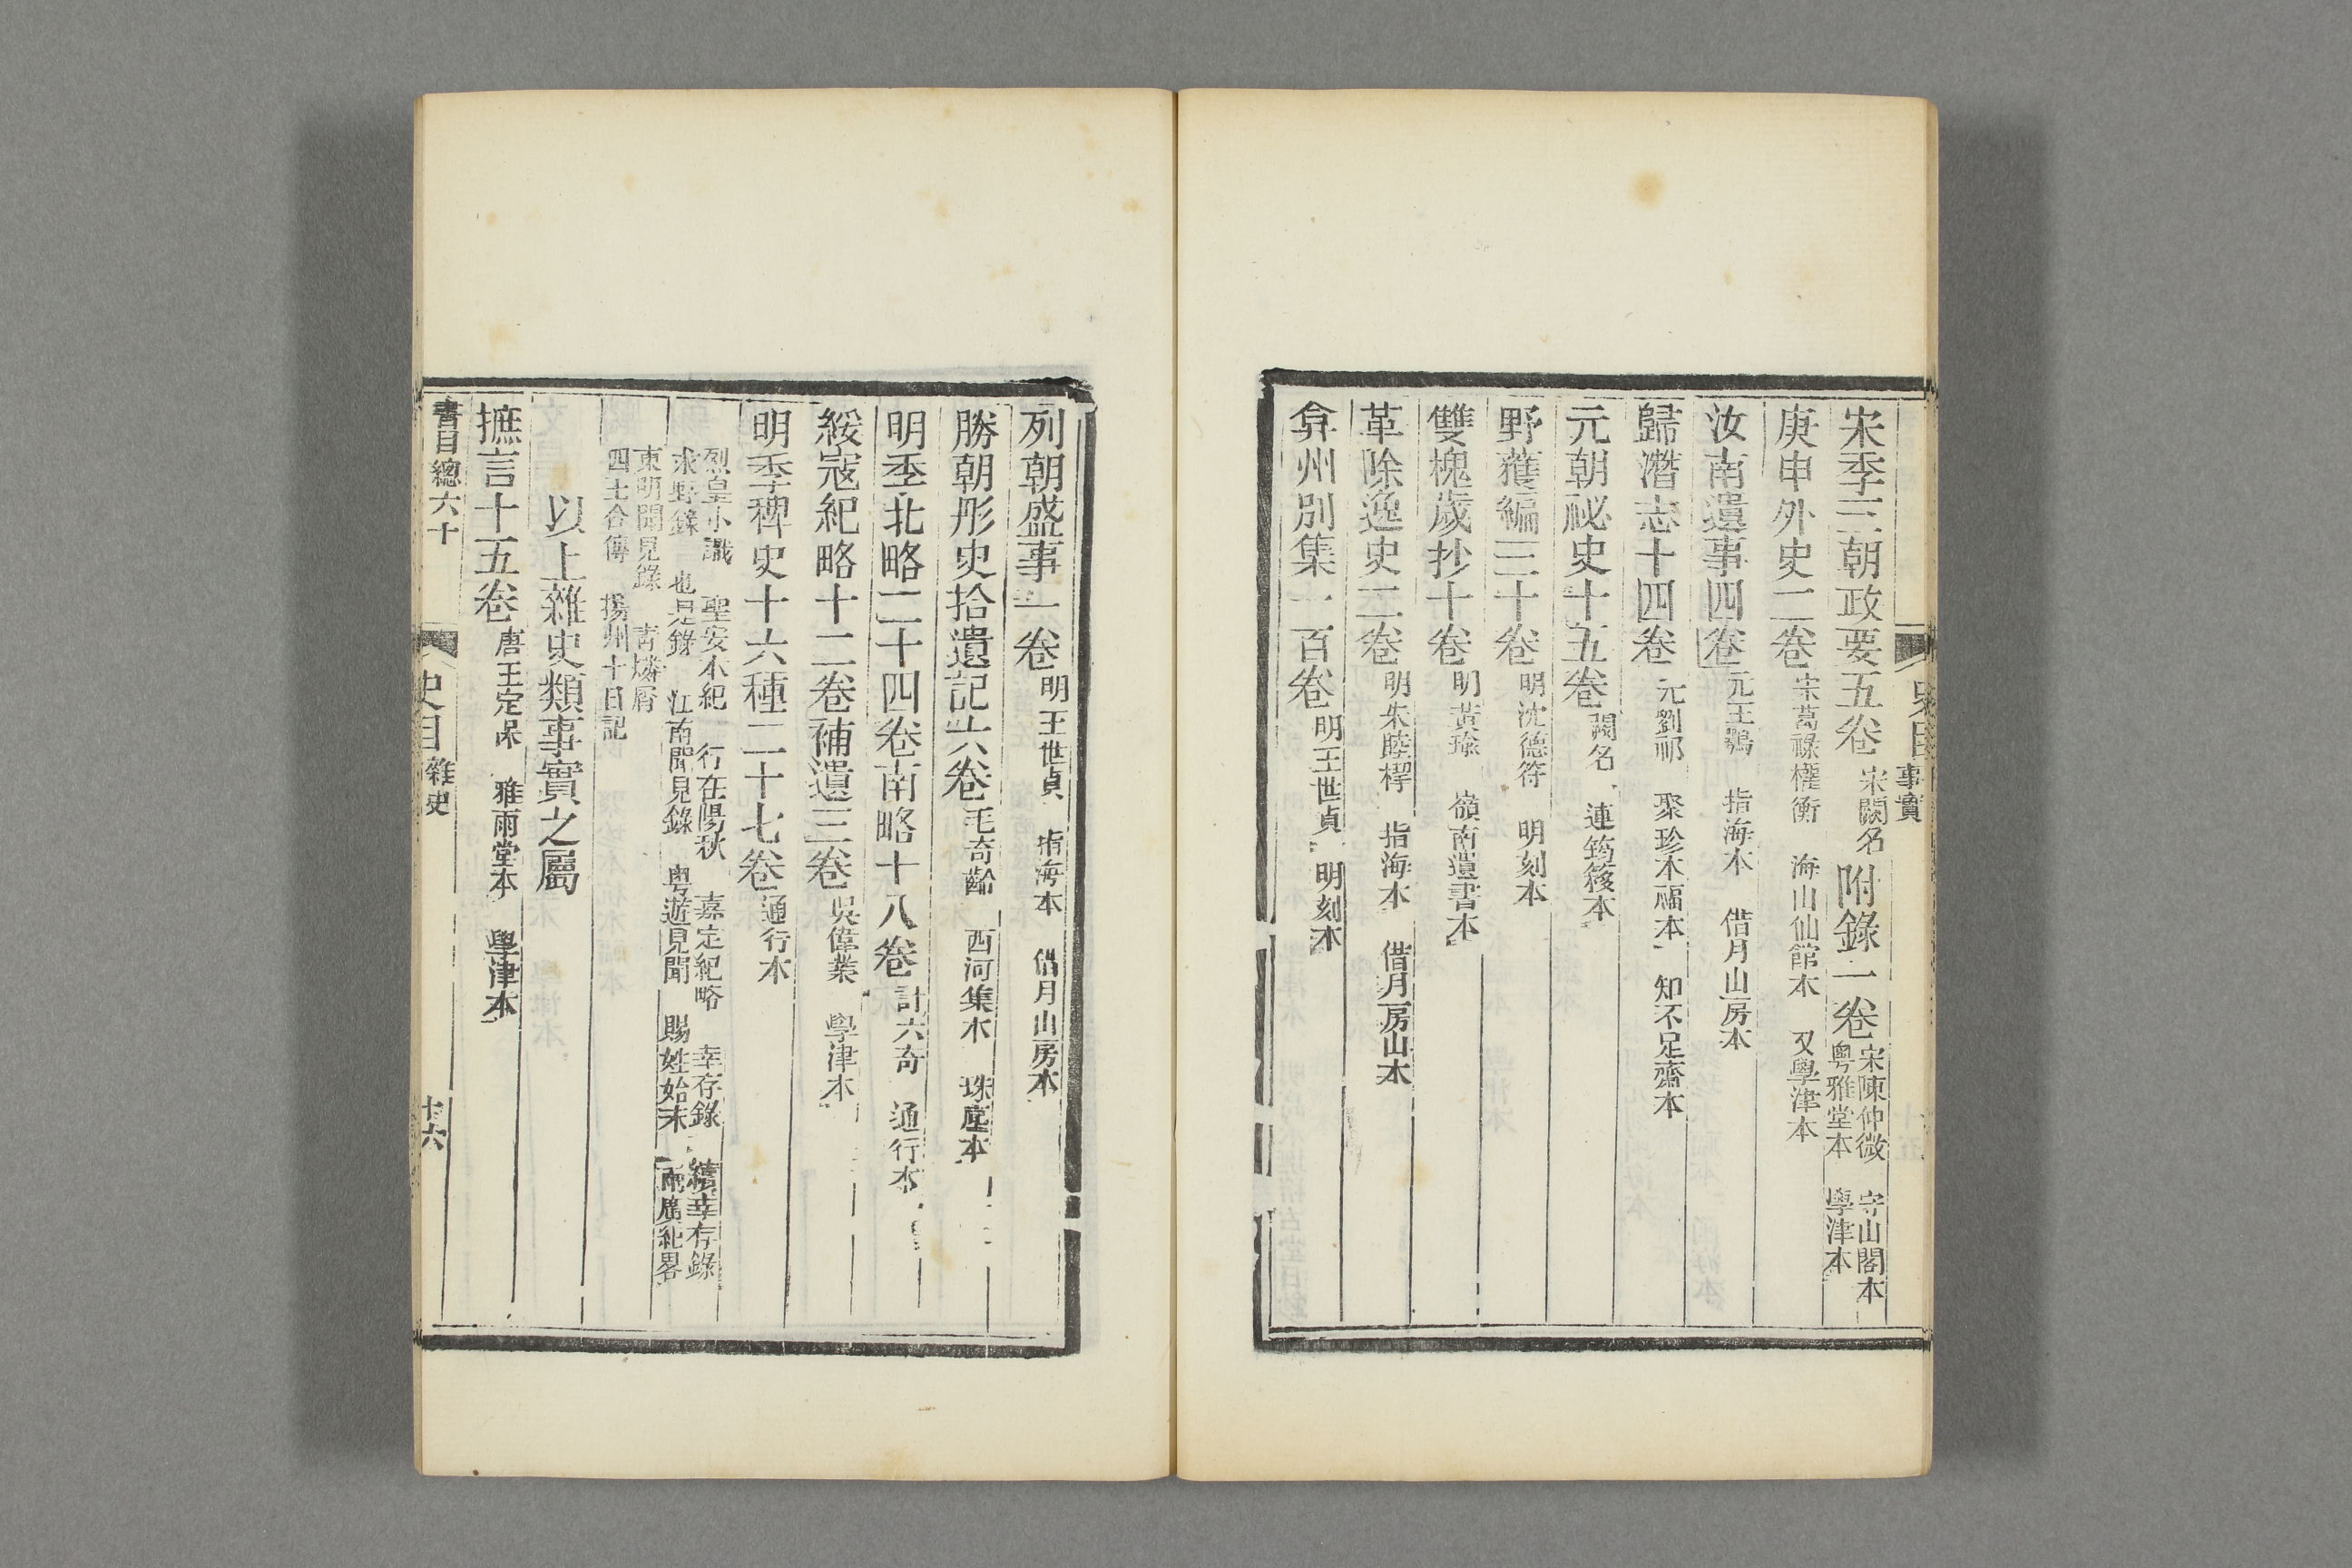 史目
事實
宋季三朝政要五卷 宋闕名 附錄一卷 宋陳仲微 守山閣本 粵雅堂本 學津本
庚申外史二卷 宋葛祿櫂衡 海山仙館本 又學津本
汝南遺事四卷 元王鶚 指海本 借月山房本
歸潛志十四卷 元劉祁 聚珍本福本 知不足齋本
元朝祕史十五卷 闕名 連筠簃本
野獲編三十卷 明沈德符 明刻本
雙槐歲抄十卷 明黃瑜 嶺南遺書本
革除逸史二卷 明朱睦㮮 指海本 借月房山本
弇州別集一百卷 明王世貞 明刻本
列朝盛事一卷 明王世貞 指海本 借月山房本
勝朝彤史拾遺記六卷 毛奇齡 西河集本 珠塵本
明季北略二十四卷南略十八卷 計六奇 通行本
綏寇紀略十二卷補遺三卷 吳偉業 學津本
明季稗史十六種二十七卷 通行本
烈皇小識 聖安本紀 行在陽秋 嘉定紀略 幸存錄 續幸存錄
求野錄 也是錄 江南聞見錄 粵遊見聞 賜姓始末 兩廣紀畧
東明聞見錄 青燐屑
四王合傳 揚州十日記
以上雜史類事實之屬
摭言十五卷 唐王定保 雅雨堂本 學津本
書目總六十
史目
雜史
十六